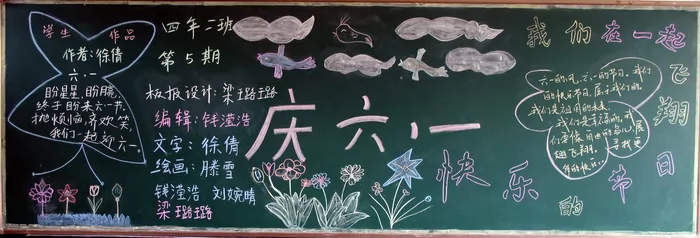 学生 作品
作者:徐倩
六·一
盼星星,盼月亮,
终于盼来六一节,
抛烦恼,齐欢笑,
我们一起迎六一。
四年二班
第5期
板报设计:梁璐璐
编辑:钱滢浩
文字:徐倩
绘画:滕雪
钱滢浩 刘婉晴
梁璐璐
庆六·一
我们在一起飞翔
快乐的节日
六一的风,六一的节日,我们
的快乐节日,属于我们的